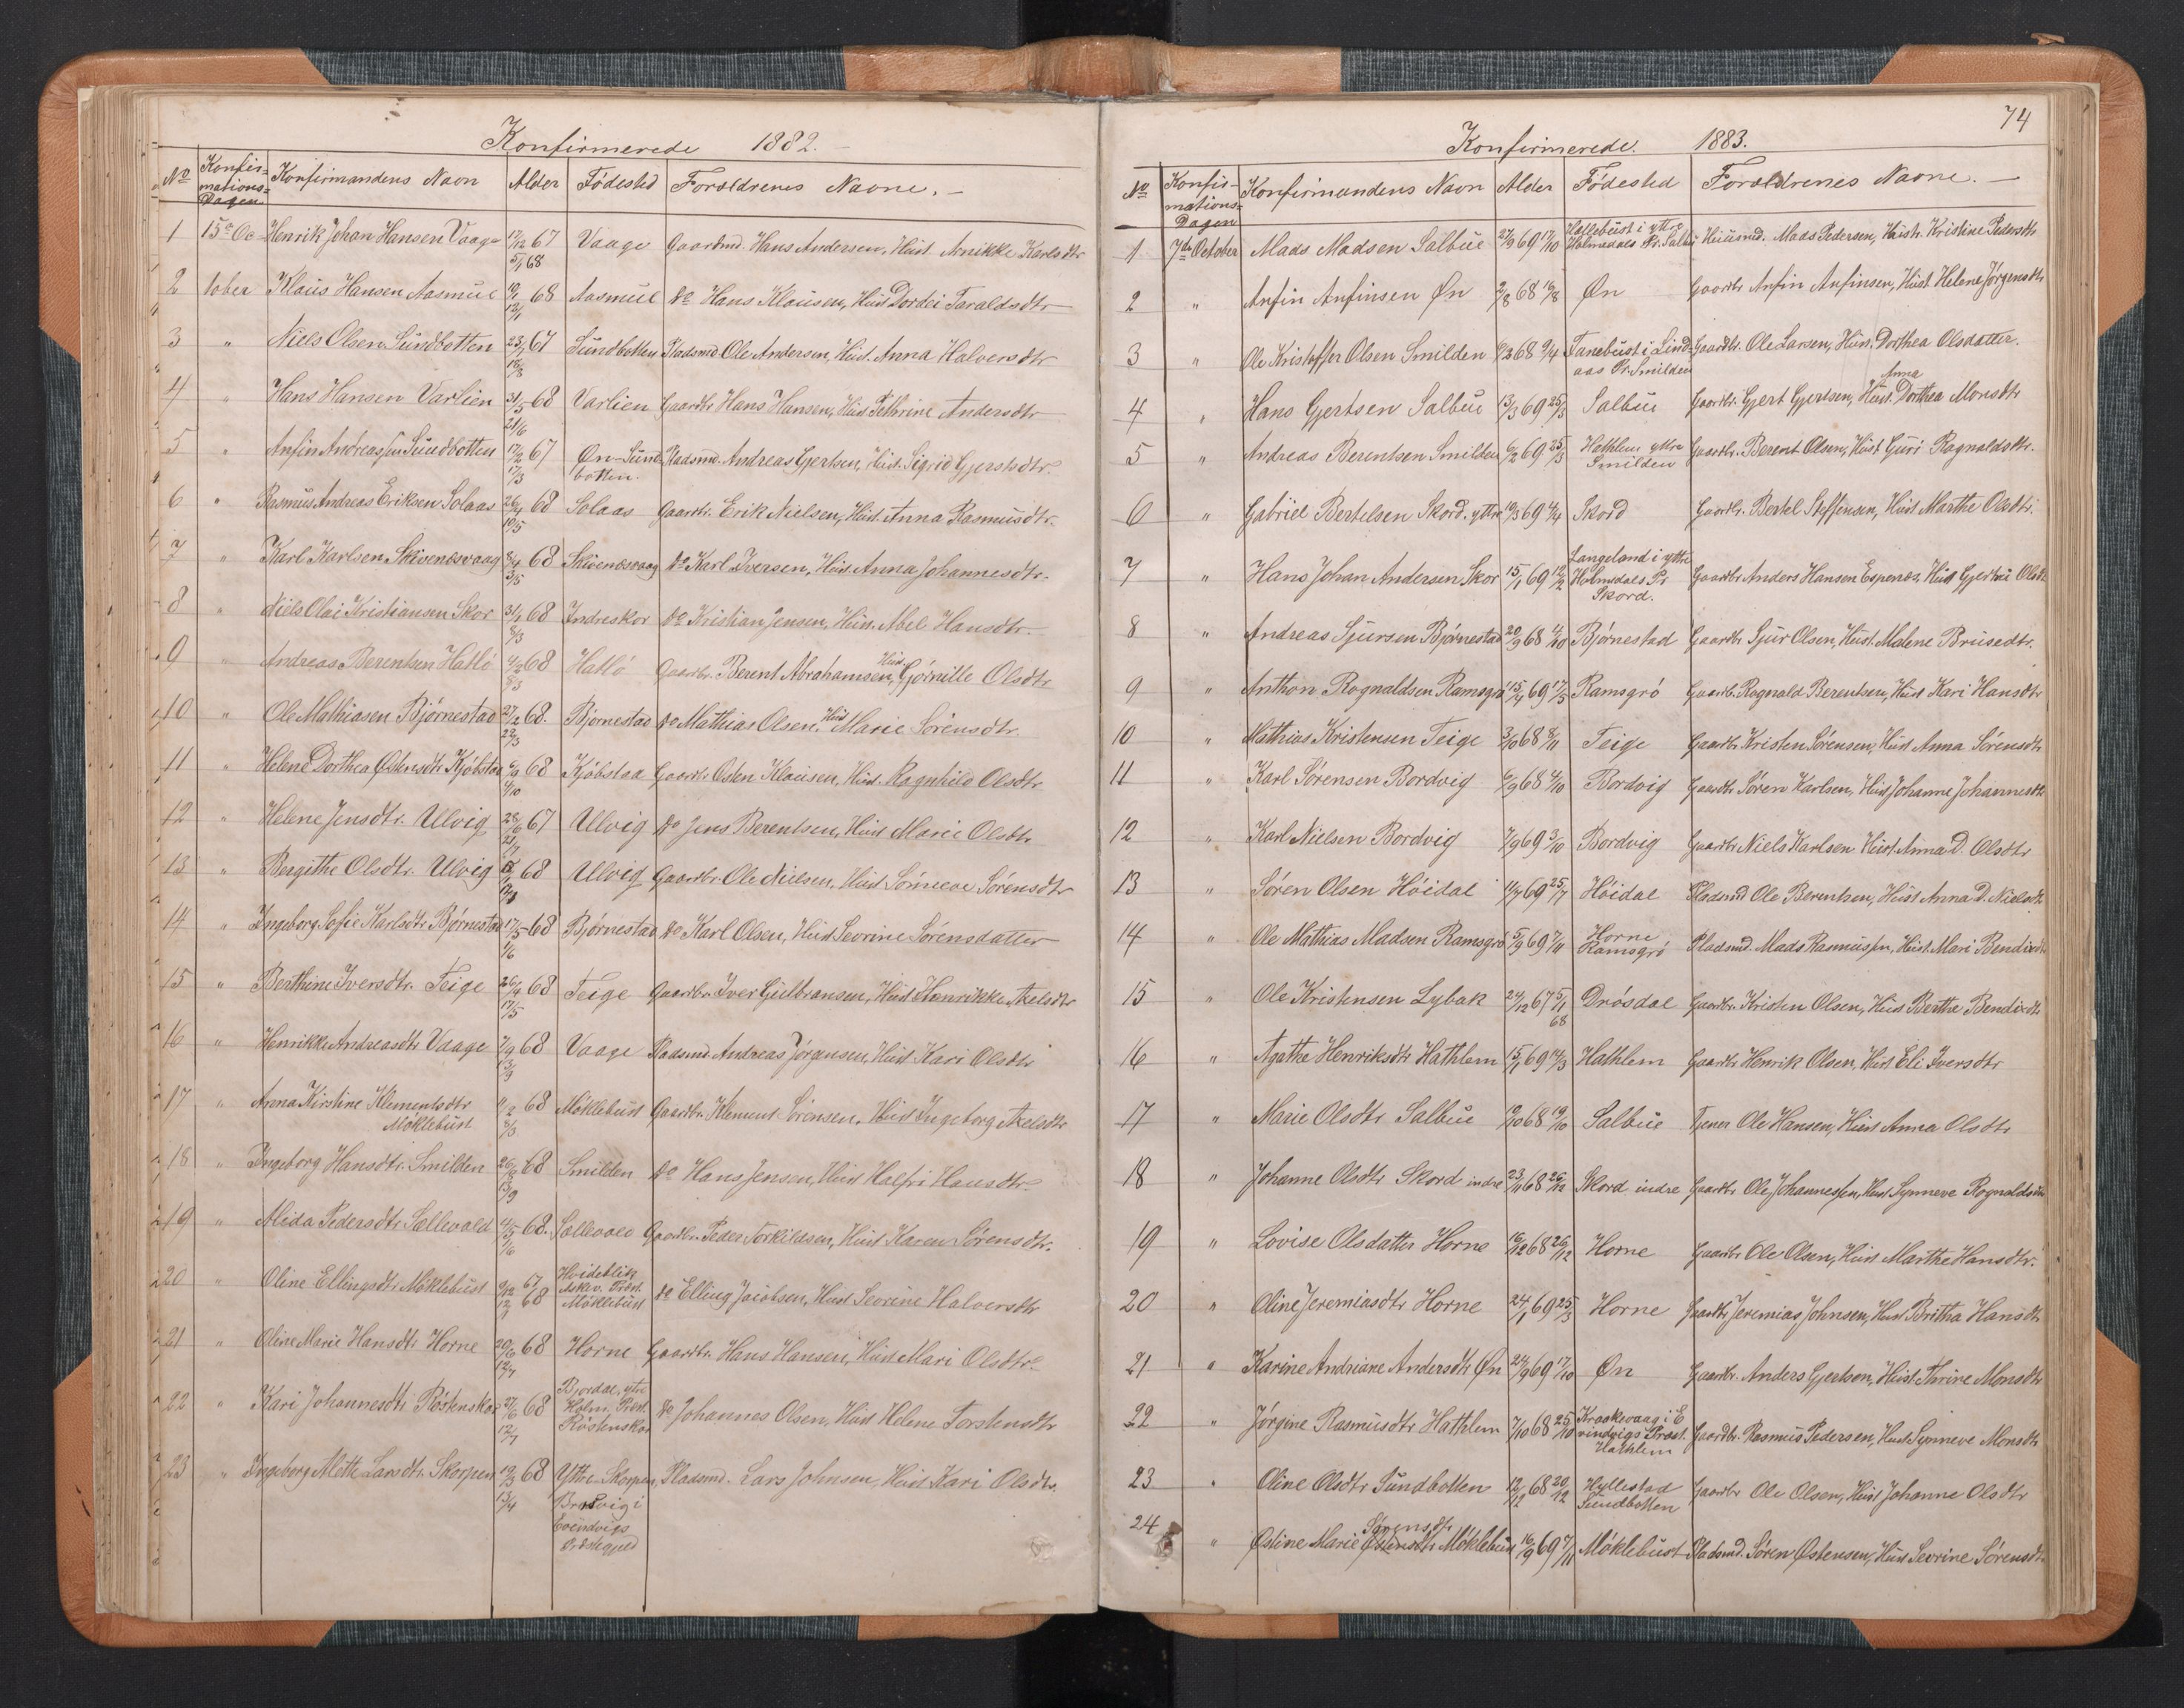 Konfirmerede 1882.
No Konfirmandens Navn Alder Fødested Forældrenes Navne.
Konfir-
mations-
Dagen
1 15de Oc- Henrik Johan Hansen Vaage 17/12 67 Vaage Gaardmd. Hans Andersen, Hust. Annikke Karlsdtr
5/1 68
2 tober Klaus Hansen Aasmul 10/1 68 Aasmul do Hans Klausen, Hust Dordei Taraldsdtr
12/1
3 " Niels Olsen Sundbotten 23/7 67 Sundbotten Pladsmd Ole Andersen, Hust. Anna Halversdtr
18/8
4 " Hans Hansen Varlien 31/5 68 Varlien Gaardbr Hans Hansen, Hust Pethrine Andersdtr
21/6
5 " Anfin Andreassen Sundbotten 17/2 67 Øn-Sund- Pladsmd. Andreas Gjertsen, Hust. Sigrid Gjertsdtr
17/3 botten.
6 " Rasmus Andreas Eriksen Solaas 26/4 68 Solaas Gaardbr. Erik Nielsen, Hust. Anna Rasmusdtr.
10/5
7 " Karl Karlsen Skivenesvaag 8/4 68 Skivenesvaag do Karl Iversen, Hust. Anna Johannesdtr.
3/5
8 " Niels Olai Kristiansen Skor 31/1 68 Indreskor do Kristian Jensen, Hust. Abel Hansdtr.
8/3
9 " Andreas Berentsen Hatlö 4/2 68 Hatlö Gaardbr. Berent Abrahamsen, Hust. Gjørnille Olsdtr
8/3
10 " Ole Mathiasen Bjørnestad 27/2 68. Bjørnestad do Mathias Olsen, Hust Marie Sørensdtr.
22/3
11 " Helene Dorthea Østensdtr Kjøbstad 6/9 68 Kjøbstad Gaardbr Østen Klausen, Hust. Ragnhild Olsdtr
4/10
12 " Helene Jensdtr. Ullvig 28/6 67 Ullvig do Jens Berentsen, Hust Marie Olsdtr
21/7
13 " Bergithe Olsdtr. Ullvig 68 Ullvig Gaardbr Ole Nielsen, Hust Sønneve Sørensdtr
14 " Ingeborg Sofie Karlsdtr Bjørnestad 17/5 68 Bjørnestad do Karl Olsen, Hust Sevrine Sørensdatter
1/6
15 " Berthine Iversdtr. Teige 26/4 68 Teige Gaardbr. Iver Gulbransen, Hust Henrikke Akelsdtr
17/5
16 " Henrikke Andreasdtr Vaage 7/9 68 Vaage Pladsmd Andreas Jørgensen, Hust Kari Olsdtr
13/9
17 " Anna Kirstine Klementsdtr 11/2 68 Møklebust Gaardbr. Klement Sørensen, Hust Ingeborg Akelsdtr
Møklebust 8/3
18 " Ingeborg Hansdtr. Smilden 26/8 68 Smilden do Hans Jensen, Hust Halfri Hansdtr.
13/9
19 " Alida Pedersdtr Søllevold 4/5 68. Søllevold Gaardbr. Peder Torkildsen, Hust Karen Sørensdtr.
1/6
20 " Oline Ellingsdtr Møklebust 9/12 67 Hvideblik
12/1 68 Askv. Præst. Møklebust do Elling Jacobsen, Hust Sevrine Halversdtr
21 " Oline Marie Hansdtr Horne 20/6 68 Horne Gaardbr. Hans Hansen, Hust Mari Olsdtr.
12/7
22 " Kari Johannesdtr Röstenskor 27/6 68 Bjordal, ytre
Holm. Præst. Röstenskor do Johannes Olsen, Hust Helene Torstensdtr
12/7
23 " Ingeborg Mette Larsdtr. Skorpen 19/3 68 Yttre Skorpen, Pladsmd. Lars Johnsen, Hust Kari Olsdtr.
13/4 Bredvig i
Evindvigs
Præstegjeld
74
Konfirmerede. 1883.
No Konfirmandens Navn Alder Fødested Forældrenes Navne.
Konfir-
mations-
Dagen
1 7de October Mads Madsen Salbue 27/9 69 17/10 Hallebust i yttre
Holmedals Pr. Salbu Huusmd. Mads Pedersen, Hustr. Kristine Pedersdtr
2 " Anfin Anfinsen Øn 2/8 68 16/8 Øn Gaardbr Anfin Anfinsen, Hust Helene Jørgensdtr
3 " Ole Kristoffer Olsen Smilden 6/3 68 9/4 Tanebust i Lind- Gaardbr. Ole Larsen, Hust. Dorthea Olsdatter.
aas Pr. Smilden
4 " Hans Gjertsen Salbue 13/3 69 25/3 Salbue Gaardbr. Gjert Gjertsen, Hust. Anna Dorthea Monsdtr
5 " Andreas Berentsen Smilden 6/2 69 25/3 Hathlem yttre
Smilden Gaardbr. Berent Olsen, Hust Guri Ragnaldsdtr.
6 " Gabriel Bertelsen Skord. yttre 10/3 69 4/4 Skord Gaardbr. Bertel Steffensen, Hust Marthe Olsdtr.
7 " Hans Johan Andersen Skor 15/1 69 12/2 Langeland i yttre
Holmedals Pr
Skord. Gaardbr Anders Hansen Espenæs, Hust Gjertrui Olsdtr
8 " Andreas Sjursen Bjørnestad 20/9 68 4/10 Bjørnestad Gaardbr. Sjur Olsen, Hust. Malene Brusedtr.
9 " Anthon Rognaldsen Ramsgrø 15/4 69 17/5 Ramsgrø Gaardb. Rognald Berentsen, Hust Kari Hansdtr
10 " Mathias Kristensen Teige 3/10 68 8/11 Teige Gaardbr Kristen Sørensen, Hust Anna Sørensdtr
11 " Karl Sørensen Bordvig 6/9 68 4/10 Bordvig Gaardbr Søren Karlsen, Hust Johanne Johannesdtr
12 " Karl Nielsen Bordvig 7/9 69 3/10 Bordvig Gaardbr Niels Karlsen Hust. Anna D. Olsdtr
13 " Søren Olsen Höidal 11/7 69 25/7 Höidal Pladsmd Ole Berentsen, Hust Anna D. Nielsdtr
14 " Ole Mathias Madsen Ramsgrø 5/9 69 7/11 Horne
Ramsgrø Pladsmd. Mads Rasmussen, Hust. Mari Bendixdtr
15 " Ole Kristensen Lybak 24/12 67 5/1 Drøsdal Gaardbr. Kristen Olsen, Hust Berthe Bendixdtr
68
16 " Agathe Henriksdtr Hathlem 15/1 69 14/3 Hathlem Gaardbr Henrik Olsen, Hust Eli Iversdtr
17 " Marie Olsdtr Salbue 10/10 68 19/10 Salbue Tjener Ole Hansen, Hust Anna Olsdtr
18 " Johanne Olsdtr Skord indre 23/11 68 26/12 Skord indre Gaardbr Ole Johannessen, Hust Synneve Rognaldsdtr
19 " Lovise Olsdatter Horne 16/12 68 26/12 Horne Gaardbr Ole Olsen, Hust Marthe Hansdtr.
20 " Oline Jeremiasdtr Horne 24/1 69 25/3 Horne Gaardbr Jeremias Johnsen, Hust Britha Hansdtr
21 " Karine Andriane Andersdtr Øn 24/9 69 17/10 Øn Gaardbr. Anders Gjertsen, Hust Thrine Monsdtr
22 " Jørgine Rasmusdtr Hathlem 7/10 68 25/10 Kraakevaag i E
vindvigs Præst.
Hathlem Gaardbr. Rasmus Pedersen, Hust Synneve Monsdtr
23 " Oline Olsdtr Sundbotten 12/12 68 20/12 Hyllestad
Sundbotten Gaardbr Ole Olsen, Hust Johanne Olsdtr
24 " Østine Marie Sørensdtr Møklebust 16/9 69 7/11 Møklebust Pladsmd. Søren Østensen, Hust Sevrine Sørensdtr